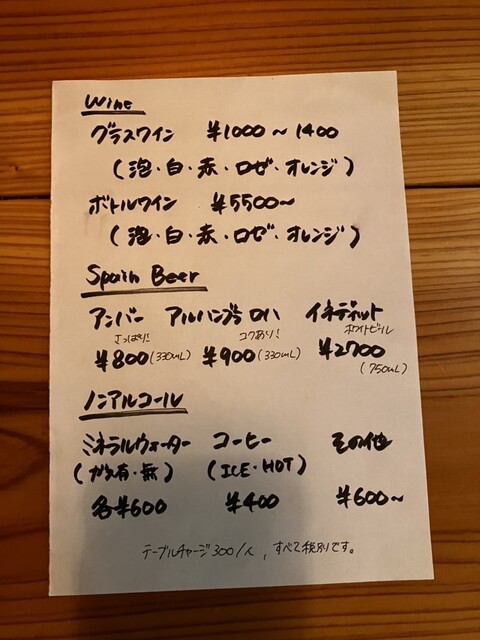 Wine
グラスワイン ¥1000～1400
(泡・白・赤・ロゼ・オレンジ)
ボトルワイン ¥5500～
(泡・白・赤・ロゼ・オレンジ)
Spain Beer
アンバー アルハンブラ ロハ イネディット
さっぱり! コクあり! ホワイトビール
¥800(330mL) ¥900(330mL) ¥2700
(750mL)
ノンアルコール
ミネラルウォーター コーヒー その他
(ガス有・無) (ICE・HOT)
各¥600 ¥400 ¥600～
テーブルチャージ300/人, すべて税別です。